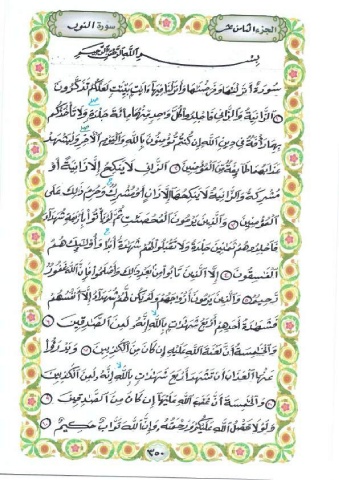 سورة النور
الجزء الثامن عشر
بسم الله الرحمن الرحيم
سورة أنزلناها وفرضناها وأنزلنا فيها ءايات بينت لعلكم تذكرون
١ الزانية والزاني فاجلدوا كل وحد منهما مائة جلدة ولا تأخذكم
بهما رأفة في دين الله إن كنتم تؤمنون بالله واليوم الآخر وليشهد
عذابهما طائفة من المؤمنين ٢ الزاني لا ينكح إلا زانية أو
مشركة والزانية لا ينكحها إلا زان أو مشرك وحرم ذلك على
المؤمنين ٣ والذين يرمون المحصنت ثم لم يأتوا بأربعة شهداء
فاجلدوهم ثمنين جلدة ولا تقبلوا لهم شهدة أبدا وأولئك هم
الفسقون ٤ إلا الذين تابوا من بعد ذلك وأصلحوا فإن الله غفور
رحيم ٥ والذين يرمون أزوجهم ولم يكن لهم شهداء إلا أنفسهم
فشهدة أحدهم أربع شهدت بالله إنه لمن الصدقين ٦
والخمسة أن لعنة الله عليه إن كان من الكذبين ٧ ويدرؤا
عنها العذاب أن تشهد أربع شهدت بالله إنه لمن الكذبين
٨ والخمسة أن غضب الله عليها إن كان من الصدقين ٩
ولولا فضل الله عليكم ورحمته وأن الله تواب حكيم ١٠
٣٥٠